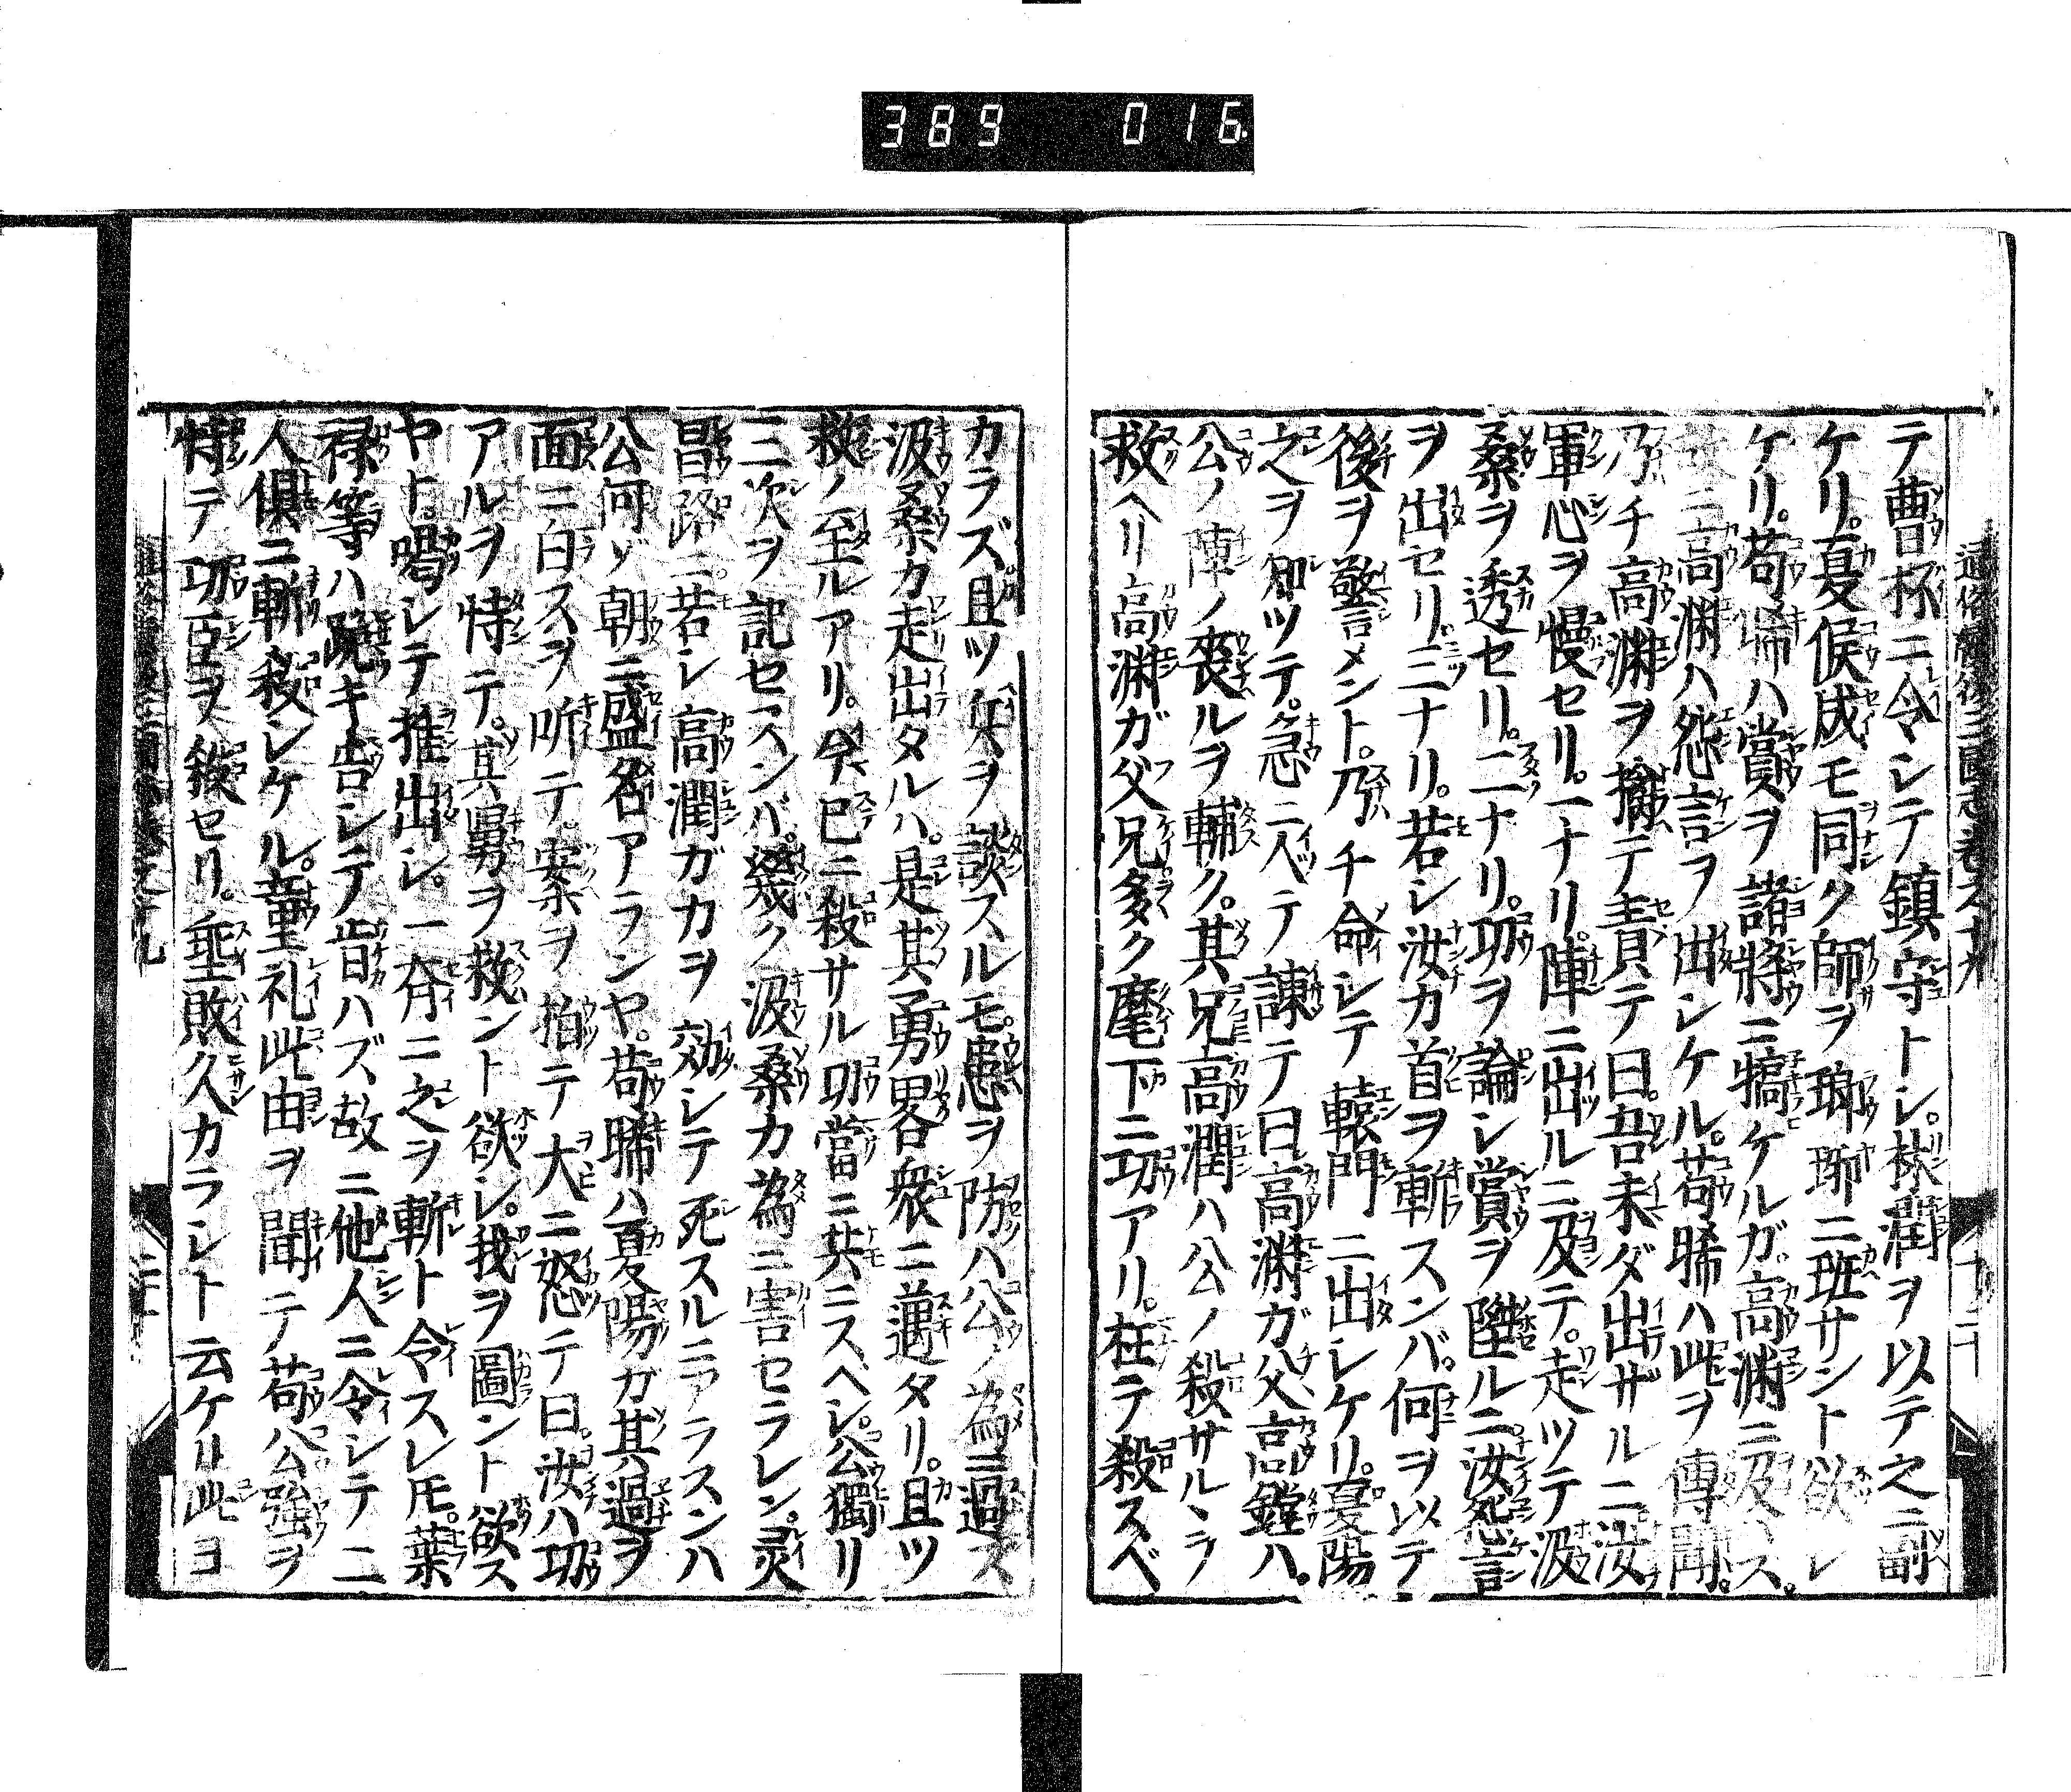 389 016
通俗續後三國志卷之十九 十 二十
テ曹杯ニ令シテ鎮守トシ。棶潤ヲ以テ之ニ副
ケリ。夏侯成モ同ク師ヲ瑯琊ニ班サント欲シ
ケリ。苟晞ハ賞ヲ諸將ニ犒ケルガ。高渊ニ及ハス。
ニ高渊ハ怨言ヲ出シケル。苟晞ハ此ヲ傳聞。
乃チ高渊ヲ擒テ責テ曰。吾未ダ出ザルニ汝
軍心ヲ慢セリ。一ナリ。陣ニ出ルニ及テ。走ツテ汲
桑ヲ透セリ。二ナリ。功ヲ論シ賞ヲ陞ルニ。汝怨言
ヲ出セリ。三ナリ。若シ汝カ首ヲ斬スンバ。何ヲ以テ
後ヲ警メント。乃チ命シテ轅門ニ出シケリ。夏陽
之ヲ知ツテ。急ニ入テ諫テ曰高渊ガ父高鏜ハ。
公ノ陣ノ喪ルヲ輔ク。其兄高潤ハ公ノ殺サルヽヲ
救ヘリ高渊ガ父兄多ク麾下ニ功アリ。枉テ殺スベ
カラズ。且ツ兵ヲ談スルモ。患ヲ防ハ公ノ為ニ過ズ
汲桑カ走出タルハ。是其勇畧衆ニ邁タリ。且ツ
救ノ至ルアリ。今巳ニ殺サル功當ニ共ニスヘシ。公獨リ
二次ヲ記セスンバ。幾ク汲桑カ為ニ害セラレン。灵
昌路ニ若シ高潤ガカヲ効シテ死スルニアラスンハ
公何ゾ朝ニ盛名アランヤ。苟晞ハ夏陽ガ其過ヲ
面ニ白スヲ听テ。案ヲ拍テ大ニ怒テ曰。汝ハ功
アルヲ恃テ。其舅ヲ救ント欲シ。我ヲ圖ント欲ス
ヤト。喝シテ推出シ。一斉ニ之ヲ斬ト令スレモ。葉
禄等ハ跪キ告シテ肯ハズ故ニ他人ニ令シテ二
人俱ニ斬殺シケル。童礼此由ヲ聞テ苟公強ヲ
恃テ功臣ヲ殺セリ。埀敗久カラシト云ケリ此ヨ